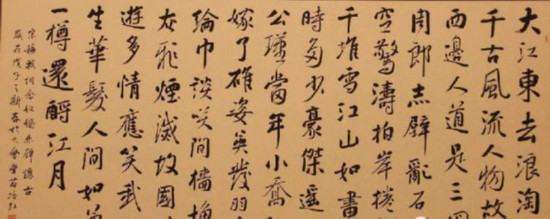 大江東去浪淘
千古風流人物故
西邊人道是三
周郎赤壁亂石
空驚濤拍岸捲
千堆雪江山如畫
時多少豪傑遥
公瑾當年小喬
嫁了雄姿英發羽
綸巾談笑間檣
灰飛煙滅故國
遊多情應笑我
生華髮人間如夢
一樽還酹江月
宋蘇軾詞念奴嬌赤壁懷古
歲在戊子之